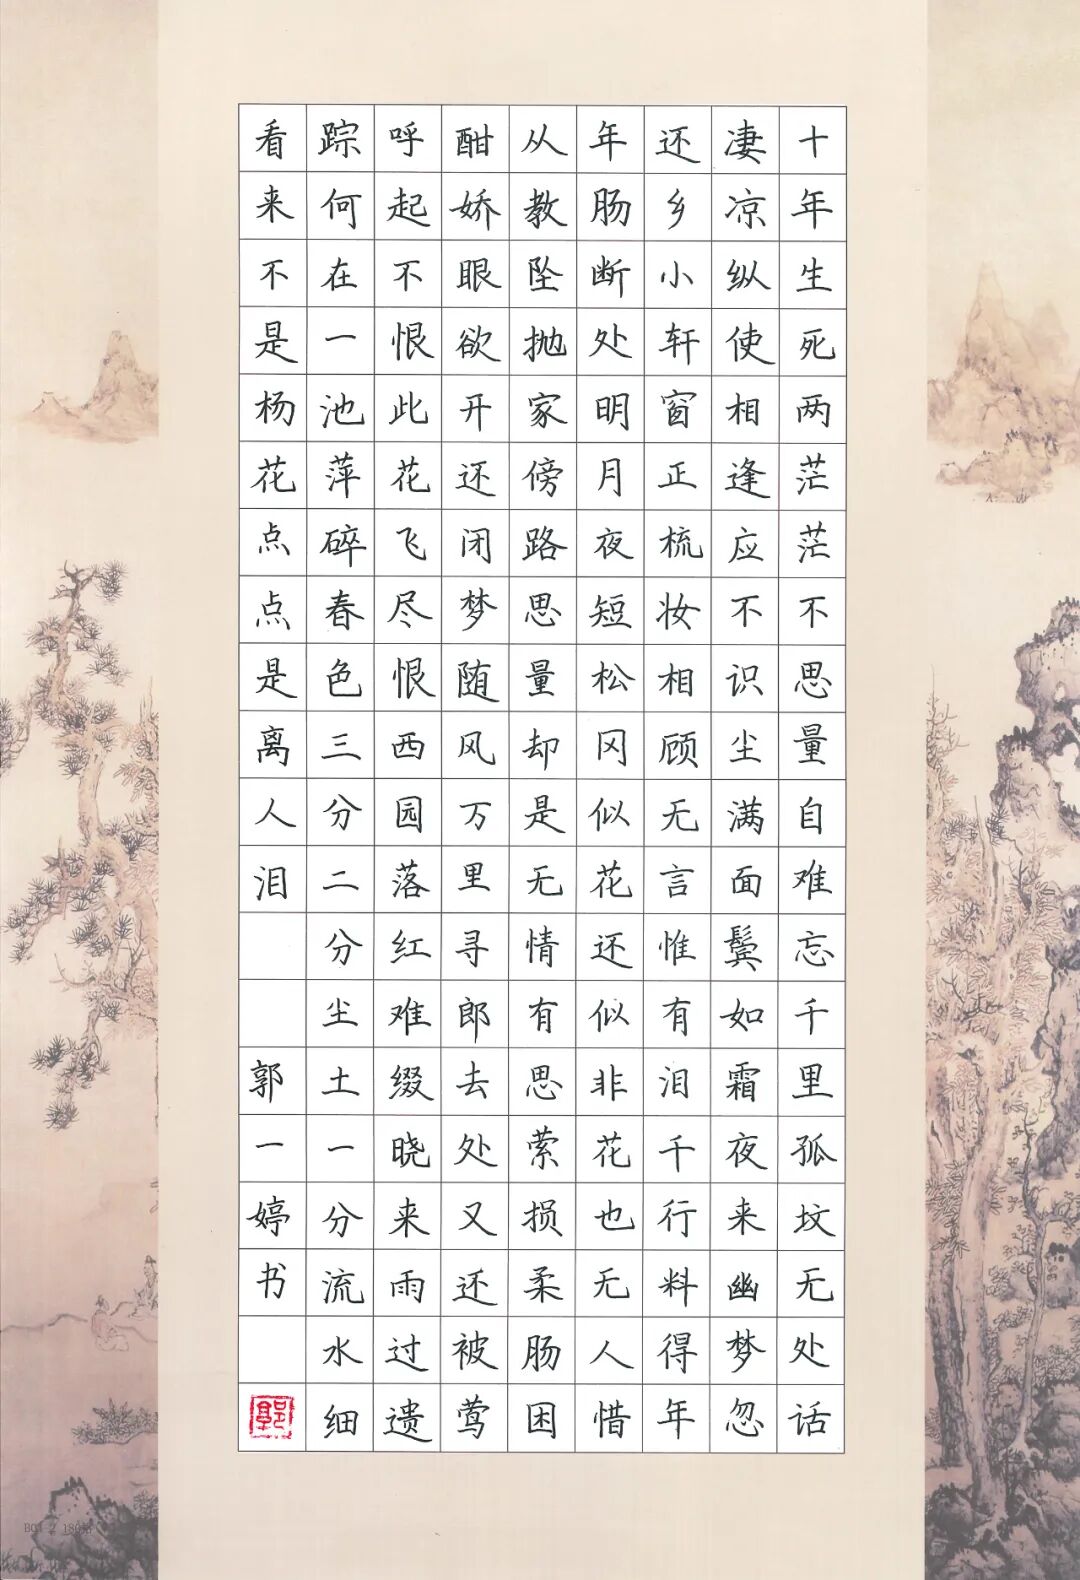 十年生死两茫茫不思量自难忘千里孤坟无处话
凄凉纵使相逢应不识尘满面鬓如霜夜来幽梦忽
还乡小轩窗正梳妆相顾无言惟有泪千行料得年
年肠断处明月夜短松冈似花还似非花也无人惜
从教坠抛家傍路思量却是无情有思萦损柔肠困
酣娇眼欲开还闭梦随风万里寻郎去处又还被莺
呼起不恨此花飞尽恨西园落红难缀晓来雨过遗
踪何在一池萍碎春色三分二分尘土一分流水细
看来不是杨花点点是离人泪 郭一婷书